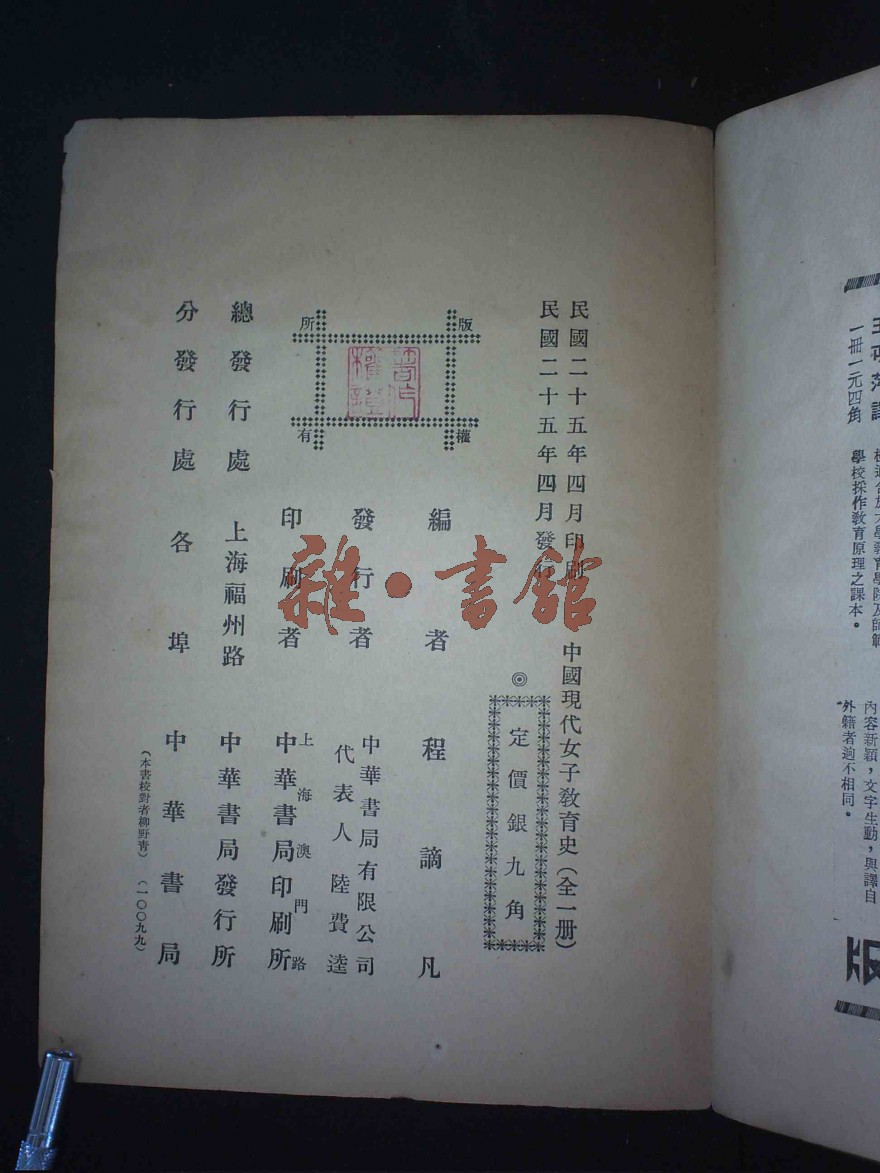 民國二十五年四月印刷
民國二十五年四月發行
中國現代女子教育史(全一册)
◎
定價銀九角
版權所有
著作權證
編者程謫凡
發行者
中華書局有限公司
代表人陸費逵
印刷者
上海澳門路
中華書局印刷所
總發行處 上海福州路 中華書局發行所
分發行處 各埠 中華書局
(本書校對者柳野青)(一〇〇九九)
雜·書館
一册一元四角
學校採作教育原理之課本。
內容新穎,文字生動,與譯自
外籍者逈不相同。
版